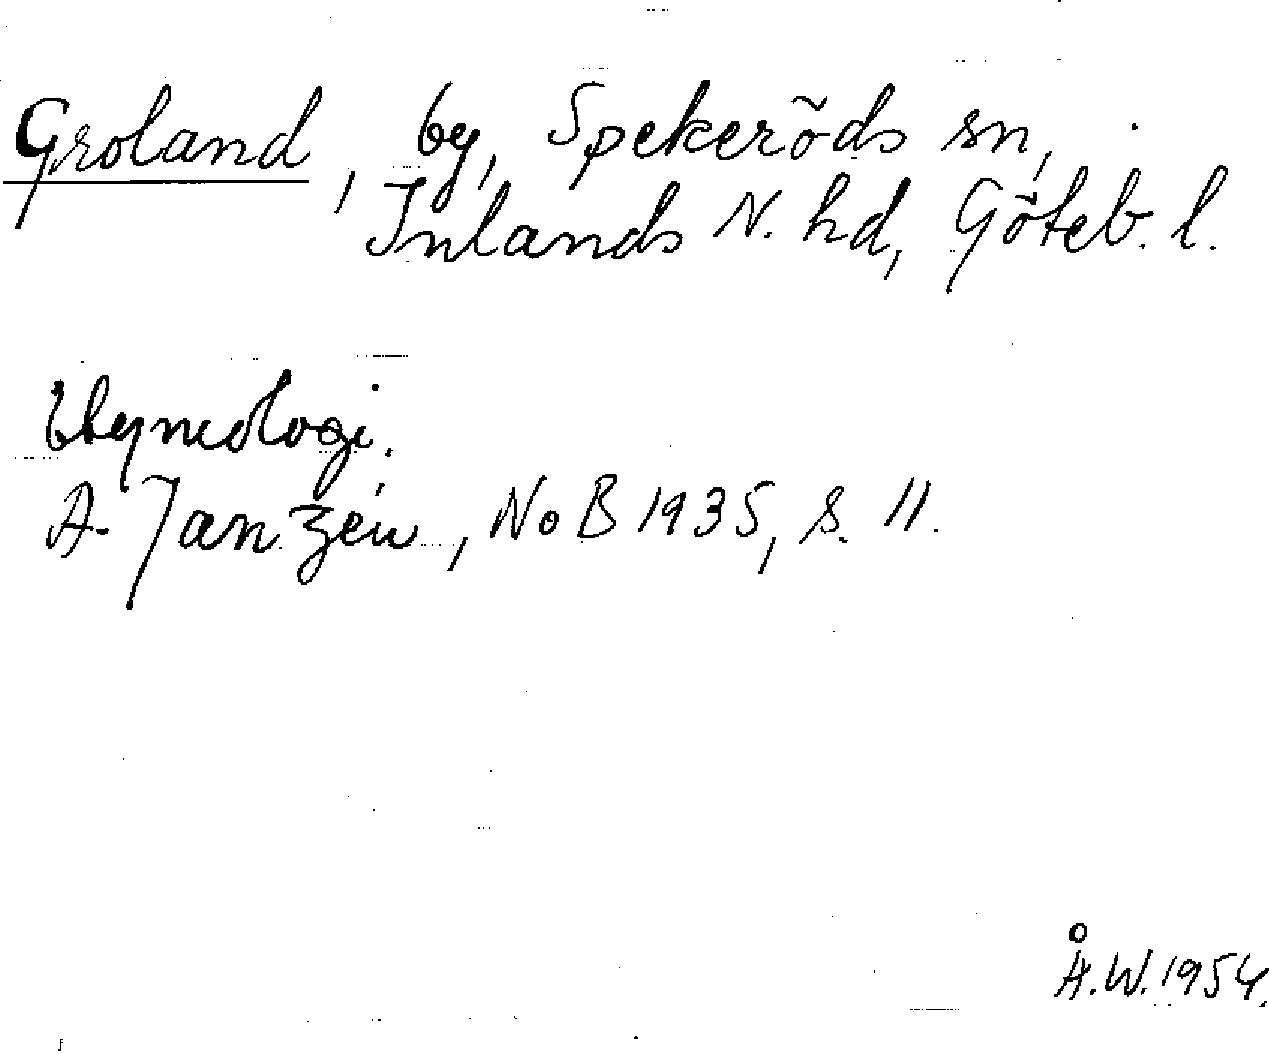 Groland, by, Spekeröds sn,
Inlands N. hd, Göteb. l.
Etymologi.
A. Janzén, NoB 1935, s. 11.
Å.W. 1954.